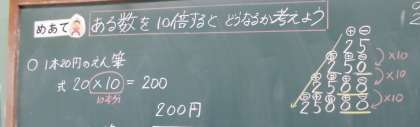 めあて ある数を10倍するとどうなるか考えよう
○ 1本20円のえん筆
式 20×10=200
10本分
200円
十 一
25
250 ×10
2500 ×10
25000 ×10